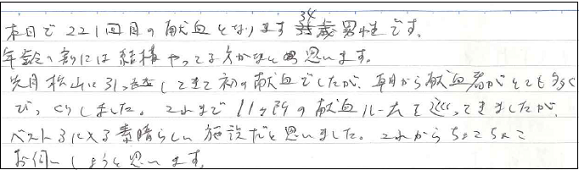 本日で221回目の献血となります34歳男性です。
年齢の割には結構やってる方かなと思います。
先月松山に引っ越してきて初の献血でしたが、朝から献血者がとても多く
びっくりしました。これまで11ヶ所の献血ルームを巡ってきましたが、
ベスト3に入る素晴らしい施設だと思いました。これからちょこちょこ
お伺いしようと思います。